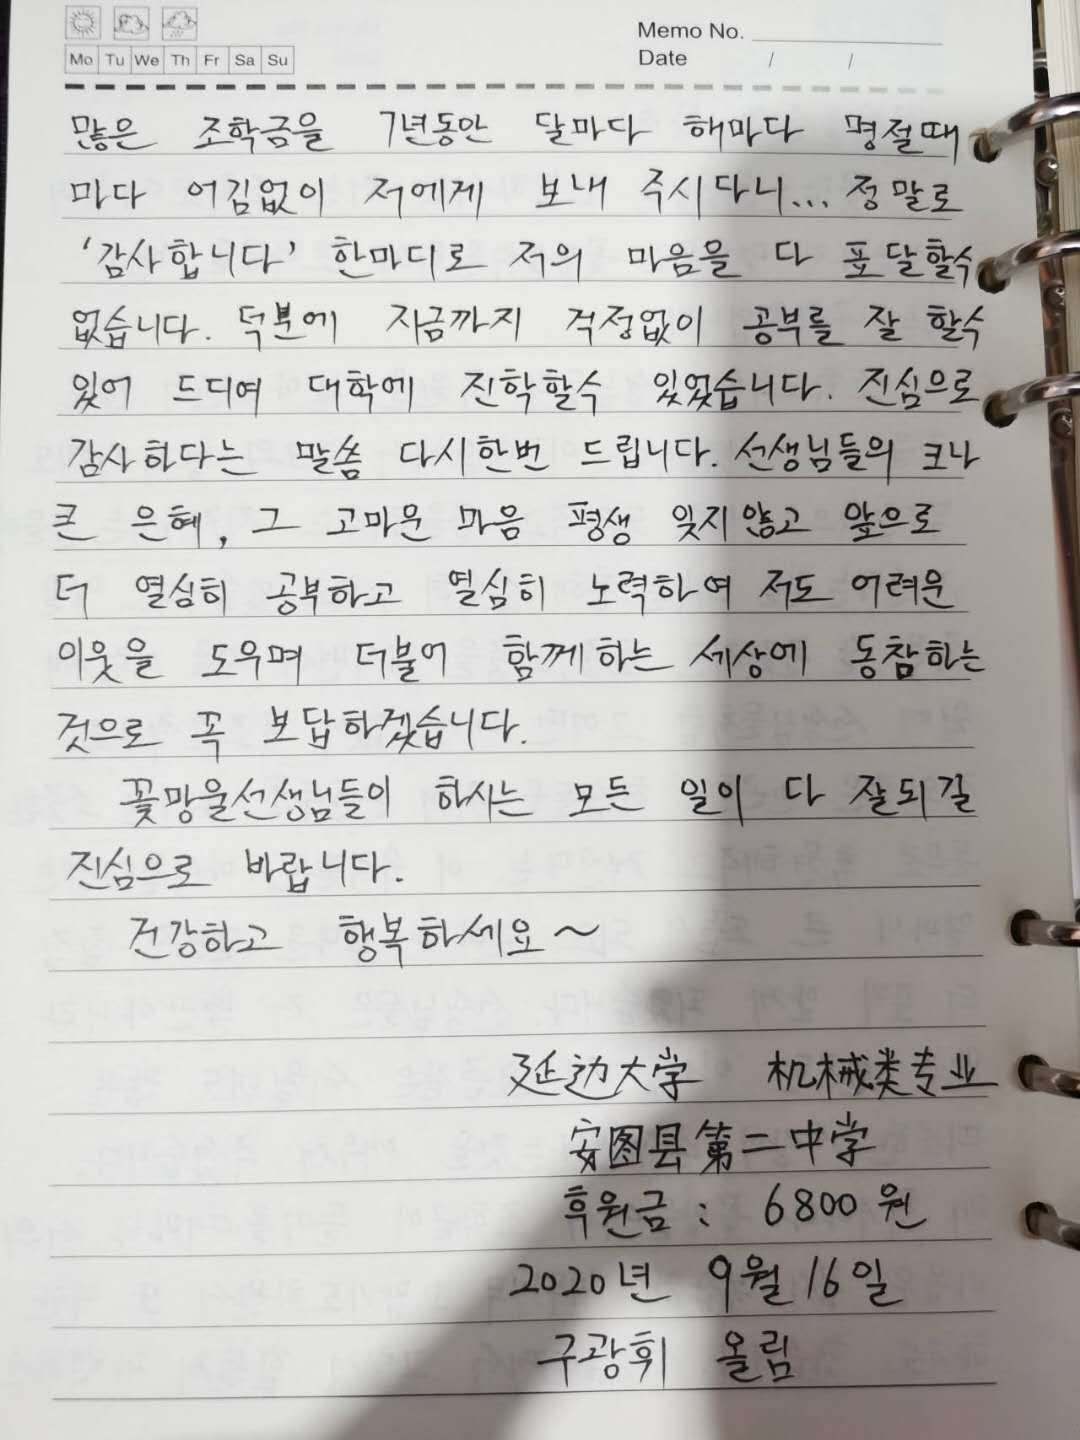 Memo No.
Mo Tu We Th Fr Sa Su
Date / /
많은 조학금을 7년동안 달마다 해마다 명절때
마다 어김없이 저에게 보내 주시다니... 정말로
'감사합니다' 한마디로 저의 마음을 다 표달할수
없습니다. 덕분에 지금까지 걱정없이 공부를 잘 할수
있어 드디여 대학에 진학할수 있었습니다. 진심으로
감사하다는 말씀 다시한번 드립니다. 선생님들의 크나
큰 은혜, 그 고마운 마음 평생 잊지않고 앞으로
더 열심히 공부하고 열심히 노력하여 저도 어려운
이웃을 도우며 더불어 함께하는 세상에 동참하는
것으로 꼭 보답하겠습니다.
꽃망울선생님들이 하시는 모든 일이 다 잘되길
진심으로 바랍니다.
건강하고 행복하세요~
延边大学 机械类专业
安图县第二中学
후원금: 6800원
2020년 9월 16일
구광휘 올림